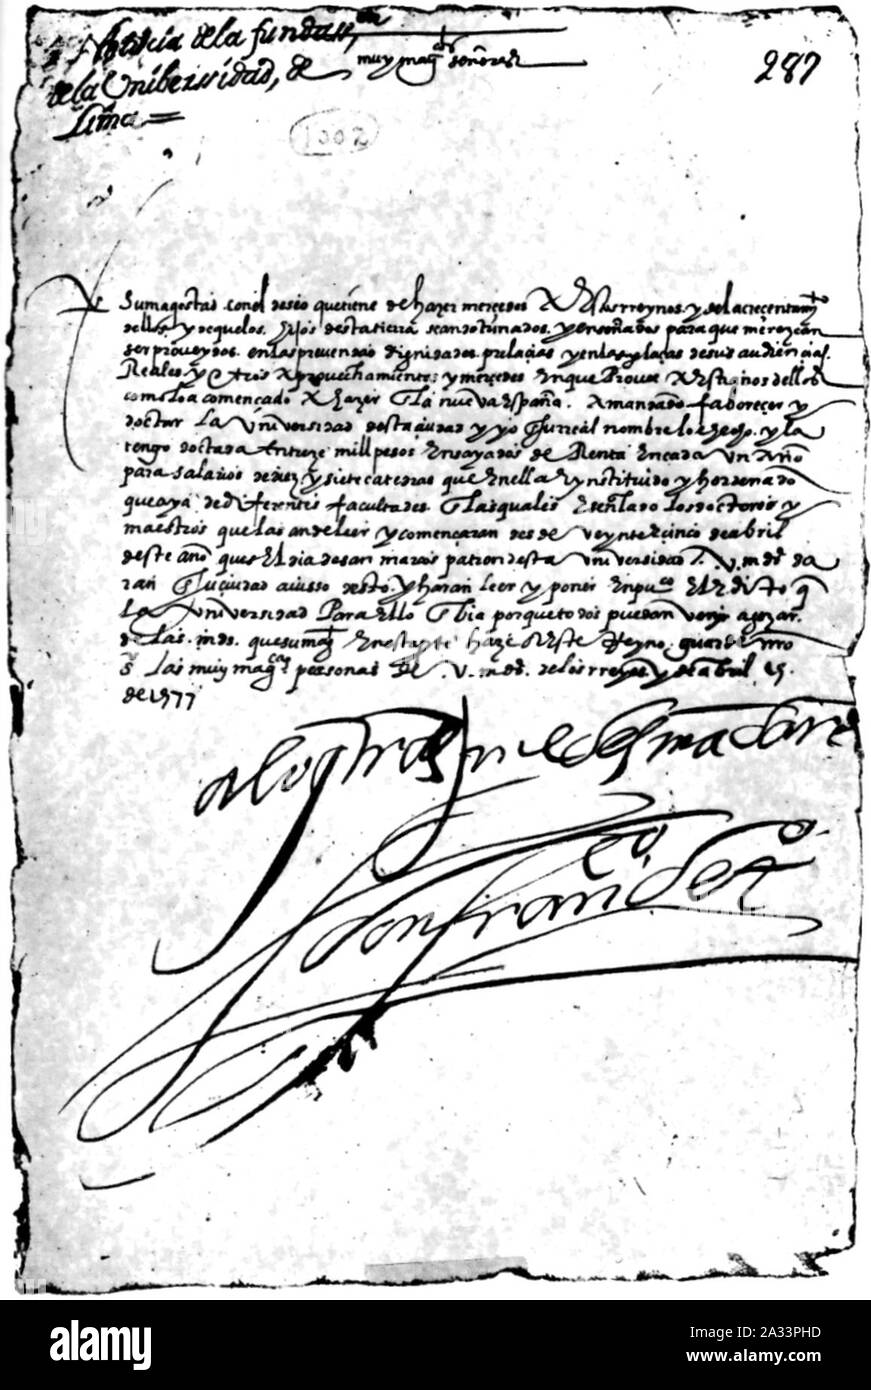 Noticia de la fundass,on
muy mag.cos señores
de la Uniberssidad, de
Lima =
287
1002
Su magestad con el deseo que tiene de hazer mercedes A Estos rreynos y del acrecentami.to
dellos y de que los hijos desta tierra sean dotrinados y enseñados para que merezcan
ser proveydos en las prevendas dignidades prelacias y en las plaças de sus audiencias
Reales y otros Aprovechamientos y mercedes En que Provee A Estos rreynos dellos
como lo a començado A hazer En la nueva España. A mandado faboreçer y
doctar La Universidad desta ciudad y yo En su rreal nombre lo e hecho y la
tengo doctada En treze mill pesos Ensayados de Renta En cada Un Año
para salarios de diez y siete catedras que En ella E ynstituido y hordenado
que aya de diferentes facultades En las quales E señalado los doctores y
maestros que las an de leer y començaran desde veynte e cinco de abril
deste año ques El dia de san marcos patron desta universidad V. mds da
ran En su ciudad avisso desto y haran leer y poner En pu.co El Edicto q
La universidad Para Ello Enbia porque todos puedan venir a gozar
de Las mds que su mag. En esta parte haze A Este Reyno guarde nro
s.r Las muy mag.cas personas de v. mds. de los rreyes y de abril 15
de 1577
a lo que vras mds mandaren
don fran.co de t.o
alamy
Image ID: 2A33PHD
www.alamy.com